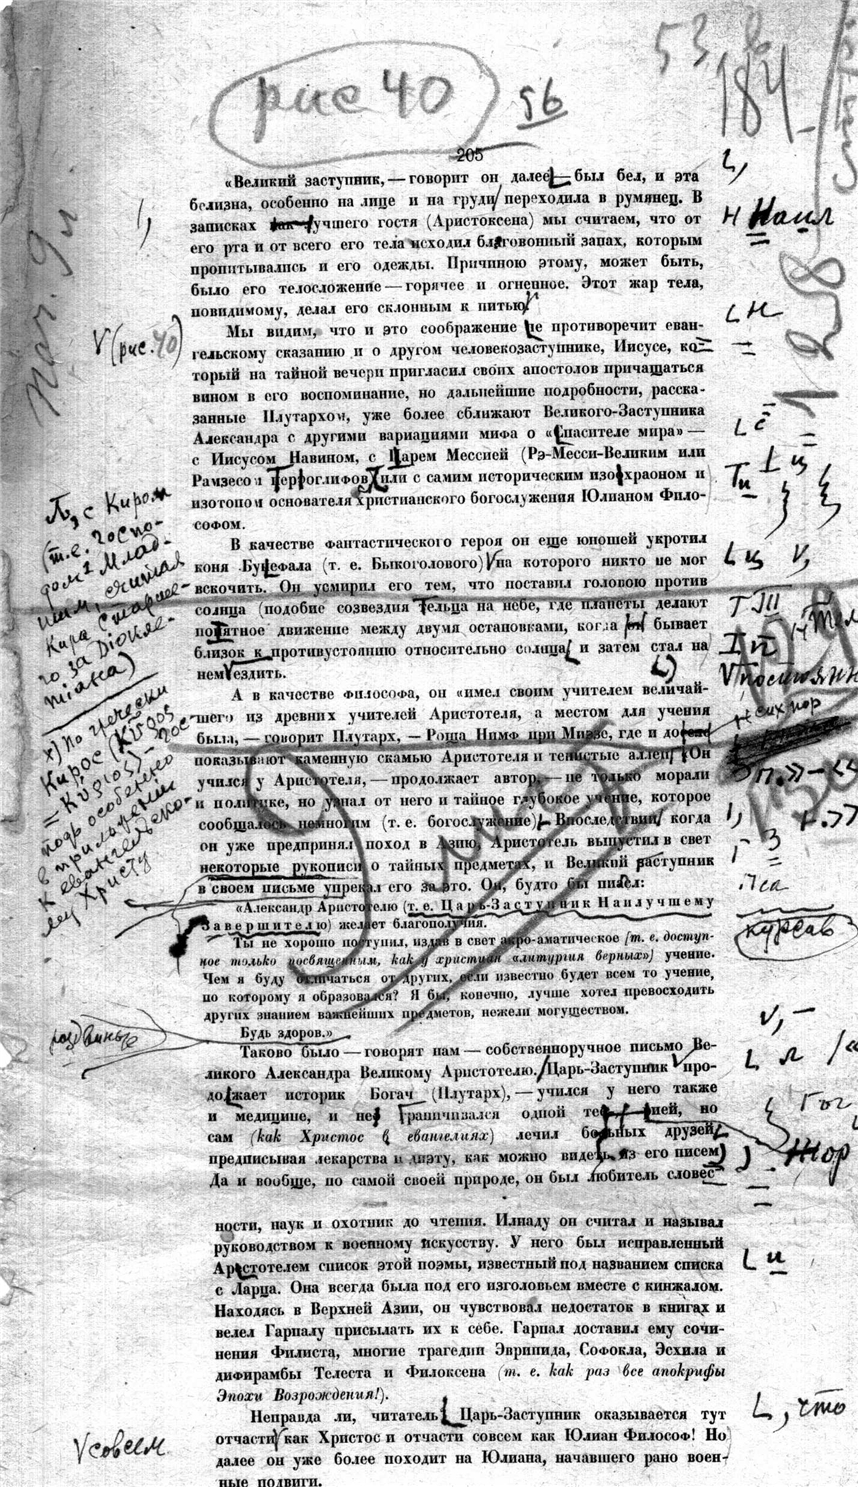 рис 40
56
53,в
184
205
«Великий заступник, — говорит он далее — был бел, и эта
белизна, особенно на лице и на груди переходила в румянец. В
записках как лучшего гостя (Аристоксена) мы считаем, что от
его рта и от всего его тела исходил благовонный запах, которым
пропитывались и его одежды. Причиною этому, может быть,
было его телосложение — горячее и огненное. Этот жар тела,
повидимому, делал его склонным к питью
V (рис. 40)
Мы видим, что и это соображение не противоречит еван-
гельскому сказанию и о другом человекозаступнике, Иисусе, ко-
торый на тайной вечери пригласил своих апостолов причащаться
вином в его воспоминание, но дальнейшие подробности, расска-
занные Плутархом, уже более сближают Великого-Заступника
Александра с другими вариациями мифа о «Спасителе мира» —
с Иисусом Навином, с Царем Мессией (Рэ-Месси-Великим или
Рамзесом иероглифов) или с самим историческим изохраоном и
изотопом основателя христианского богослужения Юлианом Фило-
софом.
с Киром
(т.е. Госпо-
дом Млад-
шим, считая
Кира Старше-
го за Диокле-
тиана)
В качестве фантастического героя он еще юношей укротил
коня Буцефала (т. е. Быкоголового) на которого никто не мог
вскочить. Он усмирил его тем, что поставил головою против
солнца (подобие созвездия Тельца на небе, где планеты делают
понятное движение между двумя остановками, когда бывает
близок к противустоянию относительно солнца и затем стал на
нем ездить.
х) По гречески
Кирос (Κῦρος
= Κύριος) — гос-
подь особенно
в приложении
к евангельско-
му Христу
А в качестве Философа, он «имел своим учителем величай-
шего из древних учителей Аристотеля, а местом для учения
была, — говорит Плутарх, — Роща Нимф при Миэзе, где и до
показывают каменную скамью Аристотеля и тенистые аллеи Он
учился у Аристотеля, — продолжает автор, — не только морали
и политике, но узнал от него и тайное глубокое учение, которое
сообщалось немногим (т. е. богослужение) Впоследствии когда
он уже предпринял поход в Азию, Аристотель выпустил в свет
некоторые рукописи о тайных предметах, и Великий заступник
в своем письме упрекал его за это. Он, будто бы писал:
«Александр Аристотелю (т. е. Царь-Заступник Наилучшему
Завершителю) желает благополучия.
курсив
Ты не хорошо поступил, издав в свет акро-аматическое (т. е. доступ-
ное только посвященным, как у христиан «литургия верных») учение.
Чем я буду отличаться от других, если известно будет всем то учение,
по которому я образовался? Я бы, конечно, лучше хотел превосходить
других знанием важнейших предметов, нежели могуществом.
Будь здоров.»
Таково было — говорят нам — собственноручное письмо Ве-
ликого Александра Великому Аристотелю. Царь-Заступник про-
должает историк Богач (Плутарх), — учился у него также
и медицине, и не граничивался одной тео ией, но
сам (как Христос в евангелиях) лечил больных друзей,
предписывая лекарства и диэту, как можно видеть из его писем
Да и вообще, по самой своей природе, он был любитель словес
ности, наук и охотник до чтения. Илиаду он считал и называл
руководством к военному искусству. У него был исправленный
Аристотелем список этой поэмы, известный под названием списка
с Ларца. Она всегда была под его изголовьем вместе с кинжалом.
Находясь в Верхней Азии, он чувствовал недостаток в книгах и
велел Гарпалу присылать их к себе. Гарпал доставил ему сочи-
нения Филиста, многие трагедии Эврипида, Софокла, Эсхила и
дифирамбы Телеста и Филоксена (т. е. как раз все апокрифы
Эпохи Возрождения!).
Неправда ли, читатель Царь-Заступник оказывается тут
, что
отчасти как Христос и отчасти совсем как Юлиан Философ! Но
V совсем
далее он уже более походит на Юлиана, начавшего рано воен-
ные подвиги.